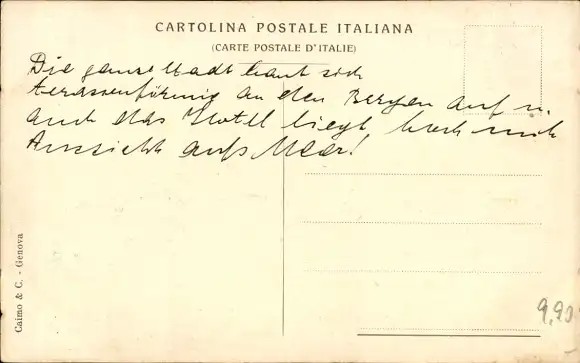 CARTOLINA POSTALE ITALIANA
(CARTE POSTALE D'ITALIE)
Die ganze Stadt baut sich
terassenförmig an den Bergen auf u.
auch das Hotel liegt hoch mit
Aussicht aufs Meer!
Caimo & C. - Genova
9,90